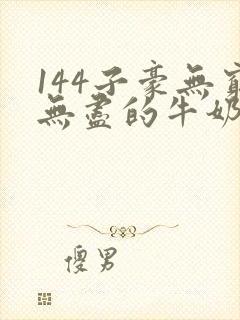 144子豪無窮
無盡的牛奶
傻男